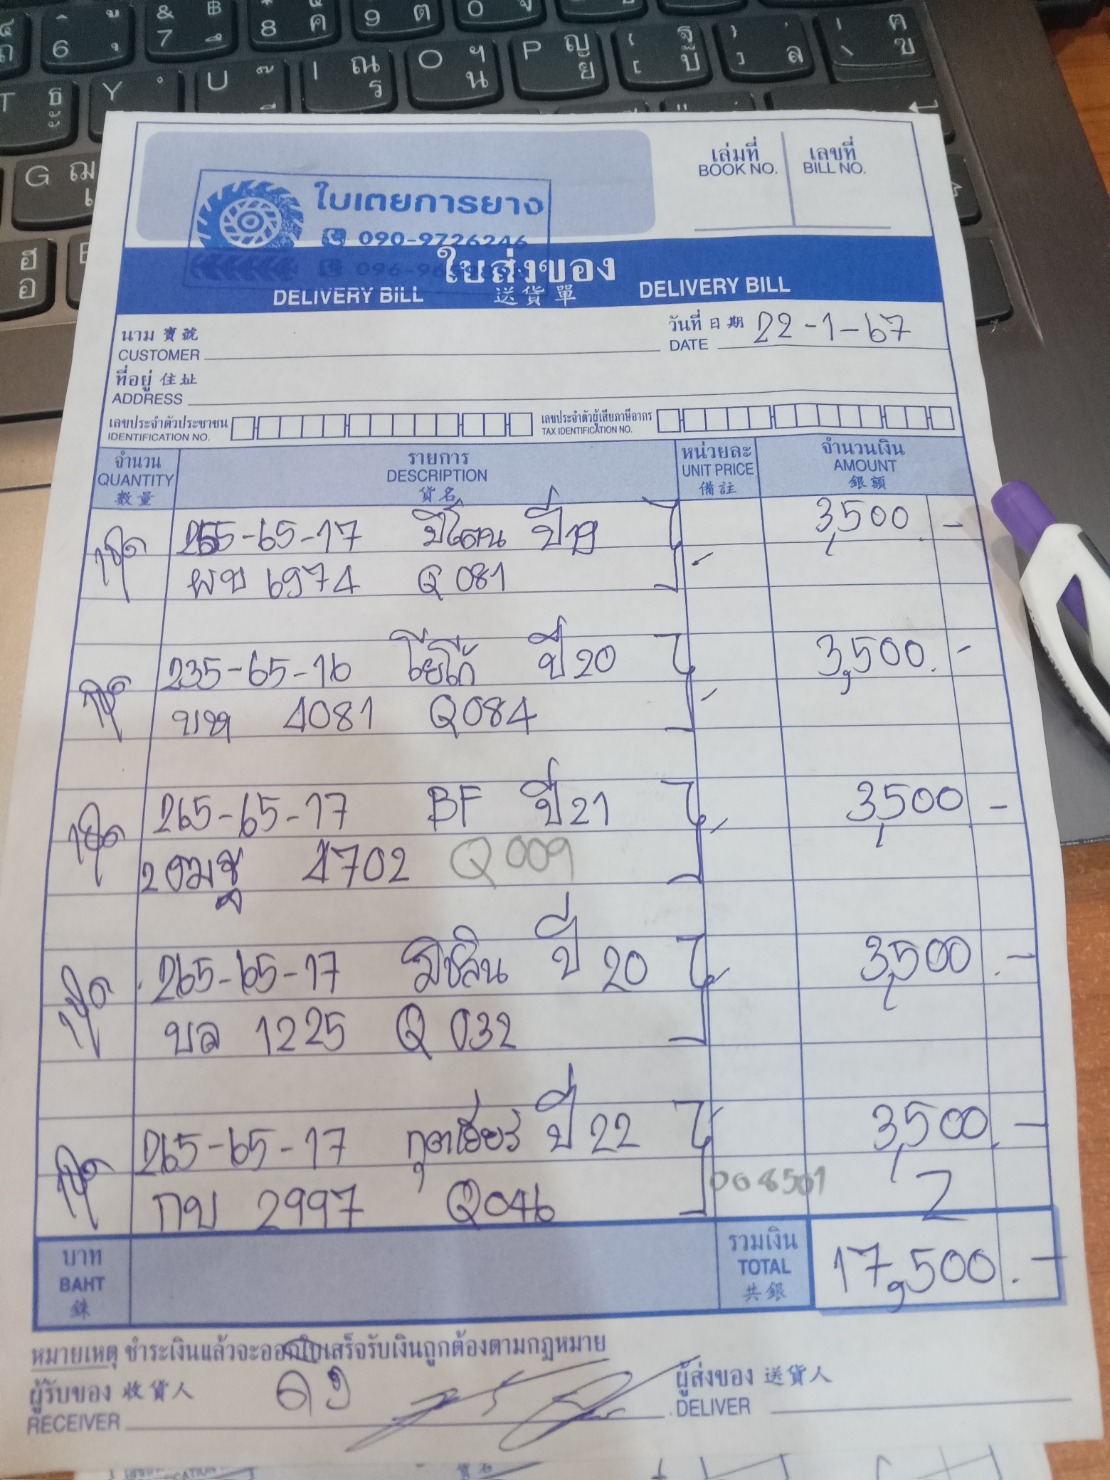 เล่มที่ เลขที่
BOOK NO. BILL NO.
ใบเตยการยาง
090-9726246
ใบส่งของ
DELIVERY BILL 送貨單 DELIVERY BILL
นาม 寶號 วันที่ 日期 22-1-67
CUSTOMER DATE
ที่อยู่ 住址
ADDRESS
เลขประจำตัวประชาชน เลขประจำตัวผู้เสียภาษีอากร
IDENTIFICATION NO. TAX IDENTIFICATION NO.
จำนวน รายการ หน่วยละ จำนวนเงิน
QUANTITY DESCRIPTION UNIT PRICE AMOUNT
數量 貨名 備註 銀額
1ชุด 265-65-17 ปี 19 3,500 -
6974 Q081
1ชุด 235-65-16 โยโก้ ปี 20 3,500.-
4081 Q084
1ชุด 265-65-17 BF ปี 21 3,500 -
4702 Q009
1ชุด 265-65-17 มิชลิน ปี 20 3,500.-
บล 1225 Q032
1ชุด 265-65-17 กูดเยียร์ ปี 22 3,500.-
กบ 2997 Q046
บาท รวมเงิน
BAHT TOTAL 17,500.-
銖 共銀
หมายเหตุ ชำระเงินแล้วจะออกใบเสร็จรับเงินถูกต้องตามกฎหมาย
ผู้รับของ 收貨人 ผู้ส่งของ 送貨人
RECEIVER DELIVER